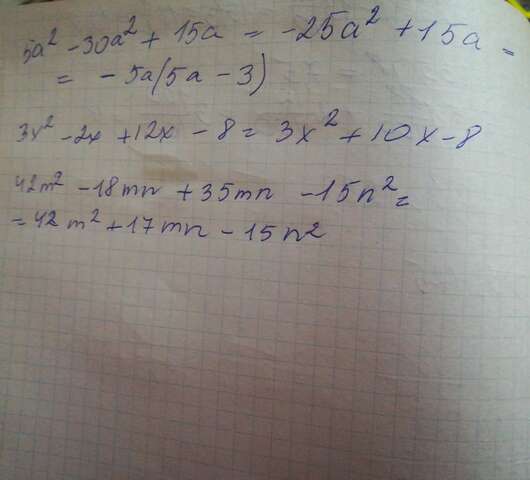 5a² - 30a² + 15a = -25a² + 15a =
= - 5a(5a - 3)
3x² - 2x + 12x - 8 = 3x² + 10x - 8
42m² - 18mn + 35mn - 15n² =
= 42m² + 17mn - 15n²